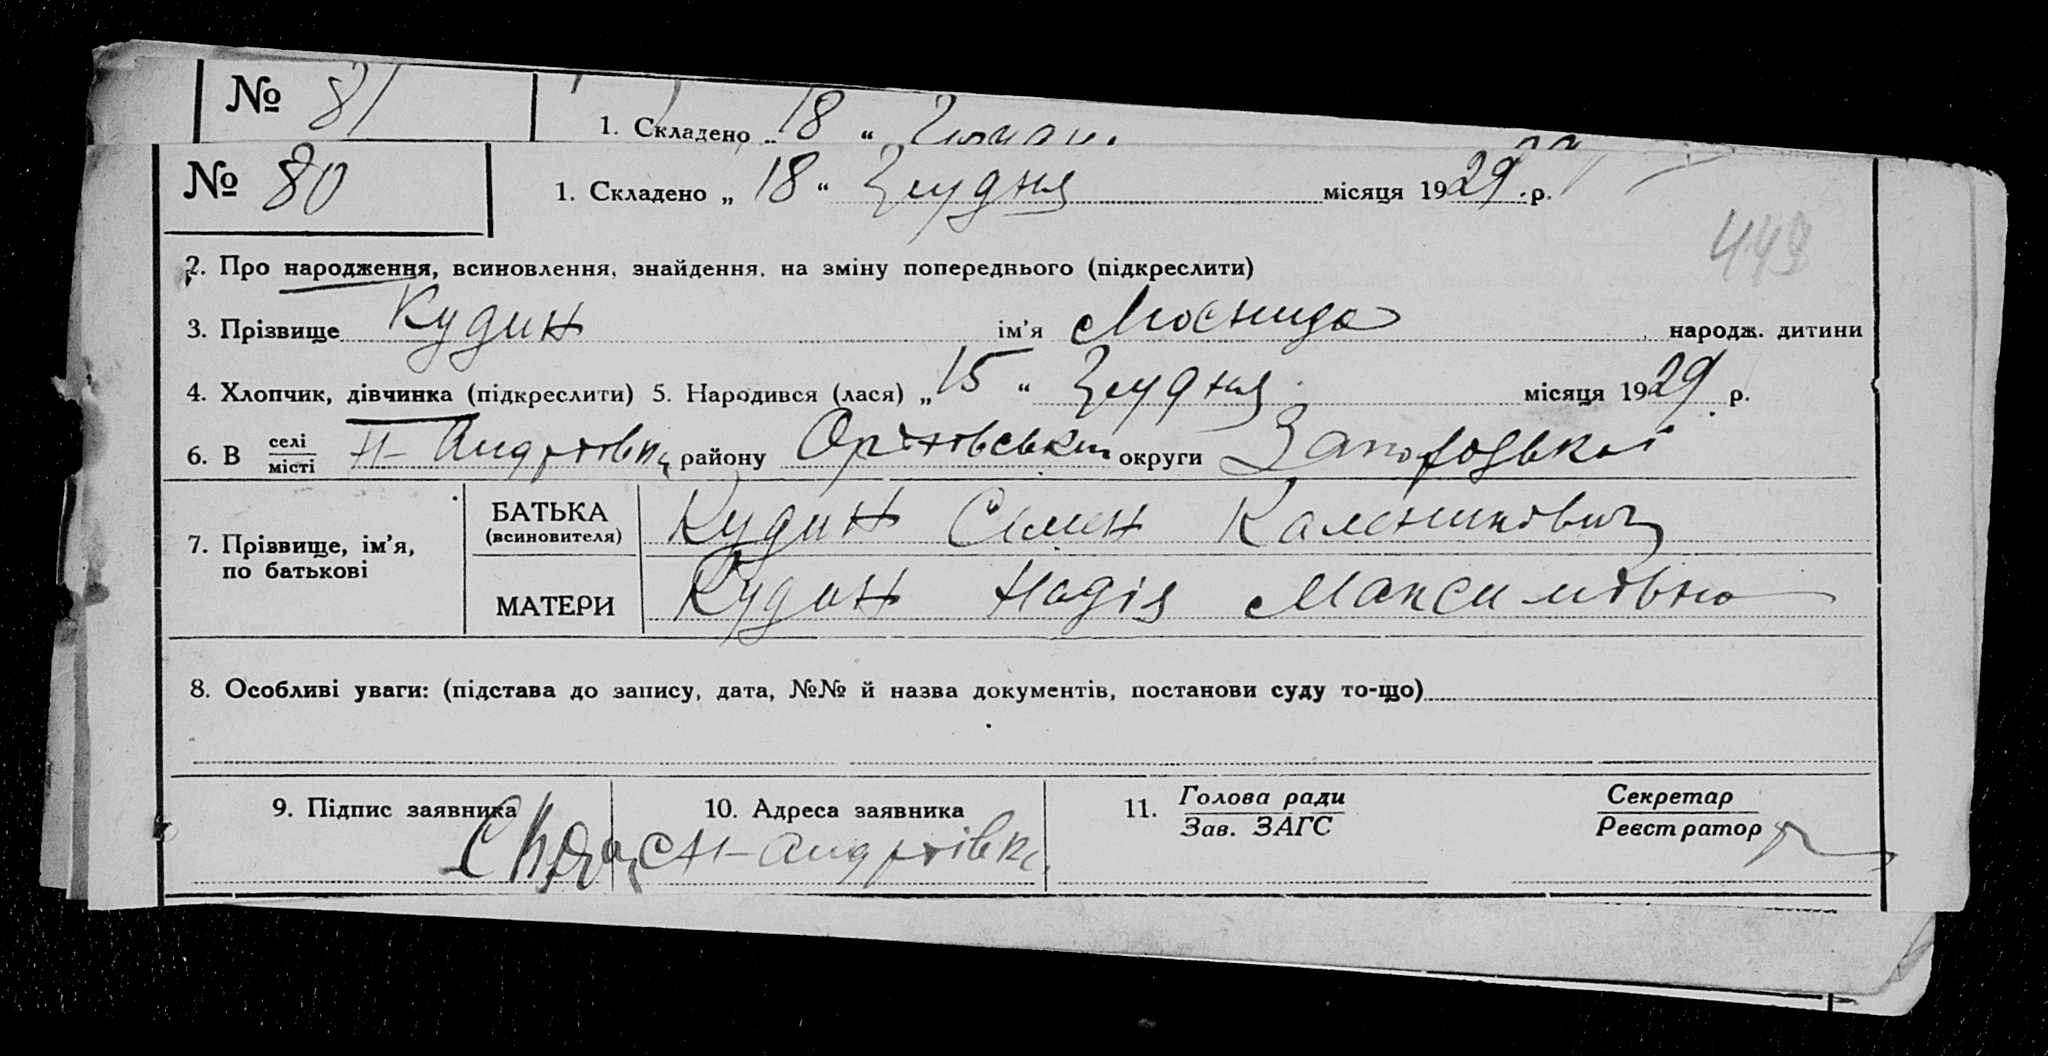 № 81
1. Складено „ 18 “
№ 80
1. Складено „ 18 “ Грудня місяця 1929 р.
448
2. Про народження, всиновлення, знайдення, на зміну попереднього (підкреслити)
3. Прізвище Кудин ім'я народж. дитини
4. Хлопчик, дівчинка (підкреслити) 5. Народився (лася) „ 15 “ Грудня місяця 1929 р.
6. В селі місті Н-Андріівка району Оріхівськ округи Запорозької
7. Прізвище, ім'я, по батькові
БАТЬКА (всиновителя) Кудин Семен Каленикович
МАТЕРИ Кудин Надія Максимовна
8. Особливі уваги: (підстава до запису, дата, №№ й назва документів, постанови суду то-що)
9. Підпис заявника
10. Адреса заявника Н-Андріівка
11. Голова ради Зав. ЗАГС
Секретар Реєстратор